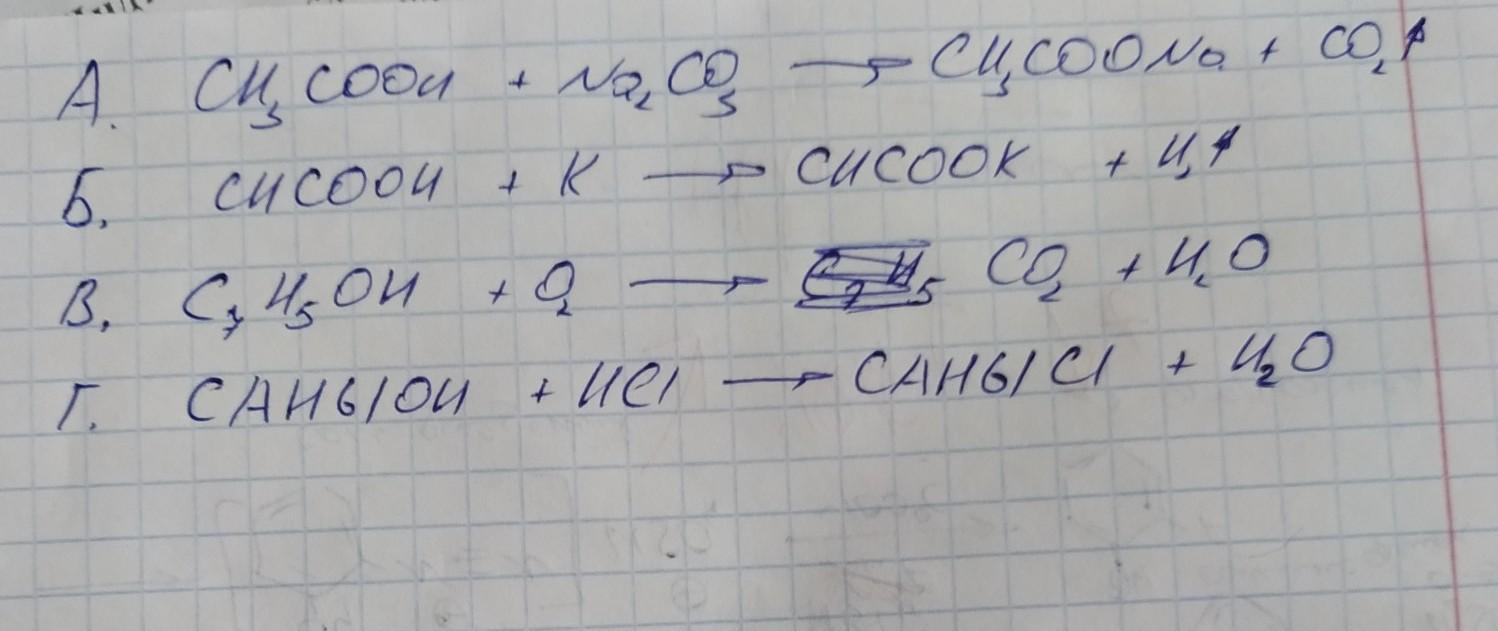 А. CH₃COOH + Na₂CO₃ → CH₃COONa + CO₂↑
Б. CHCOOH + K → CHCOOK + H₂↑
В. C₇H₅OH + O₂ → CO₂ + H₂O
Г. CAH61OH + HCl → CAH61Cl + H₂O